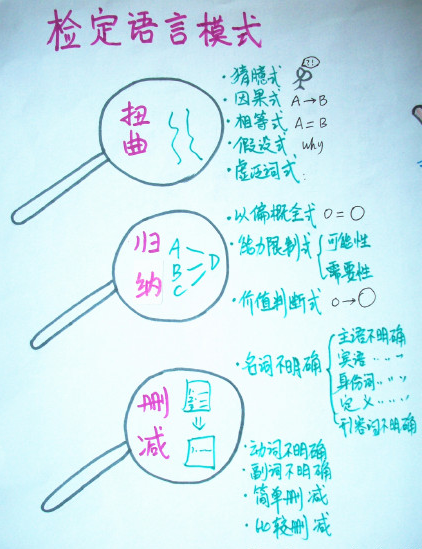 检定语言模式
扭曲
·猜臆式 ?!
·因果式 A→B
·相等式 A=B
·假设式 why
·虚泛词式:
归纳
A
B
C
D
·以偏概全式 o=O
·能力限制式 { 可能性
需要性
·价值判断式 o→O
删减
·名词不明确 { 主语不明确
宾语 ‥‥”
身份词 ‥‥”
定义 ‥‥”
形容词不明确
·动词不明确
·副词不明确
·简单删减
·比较删减